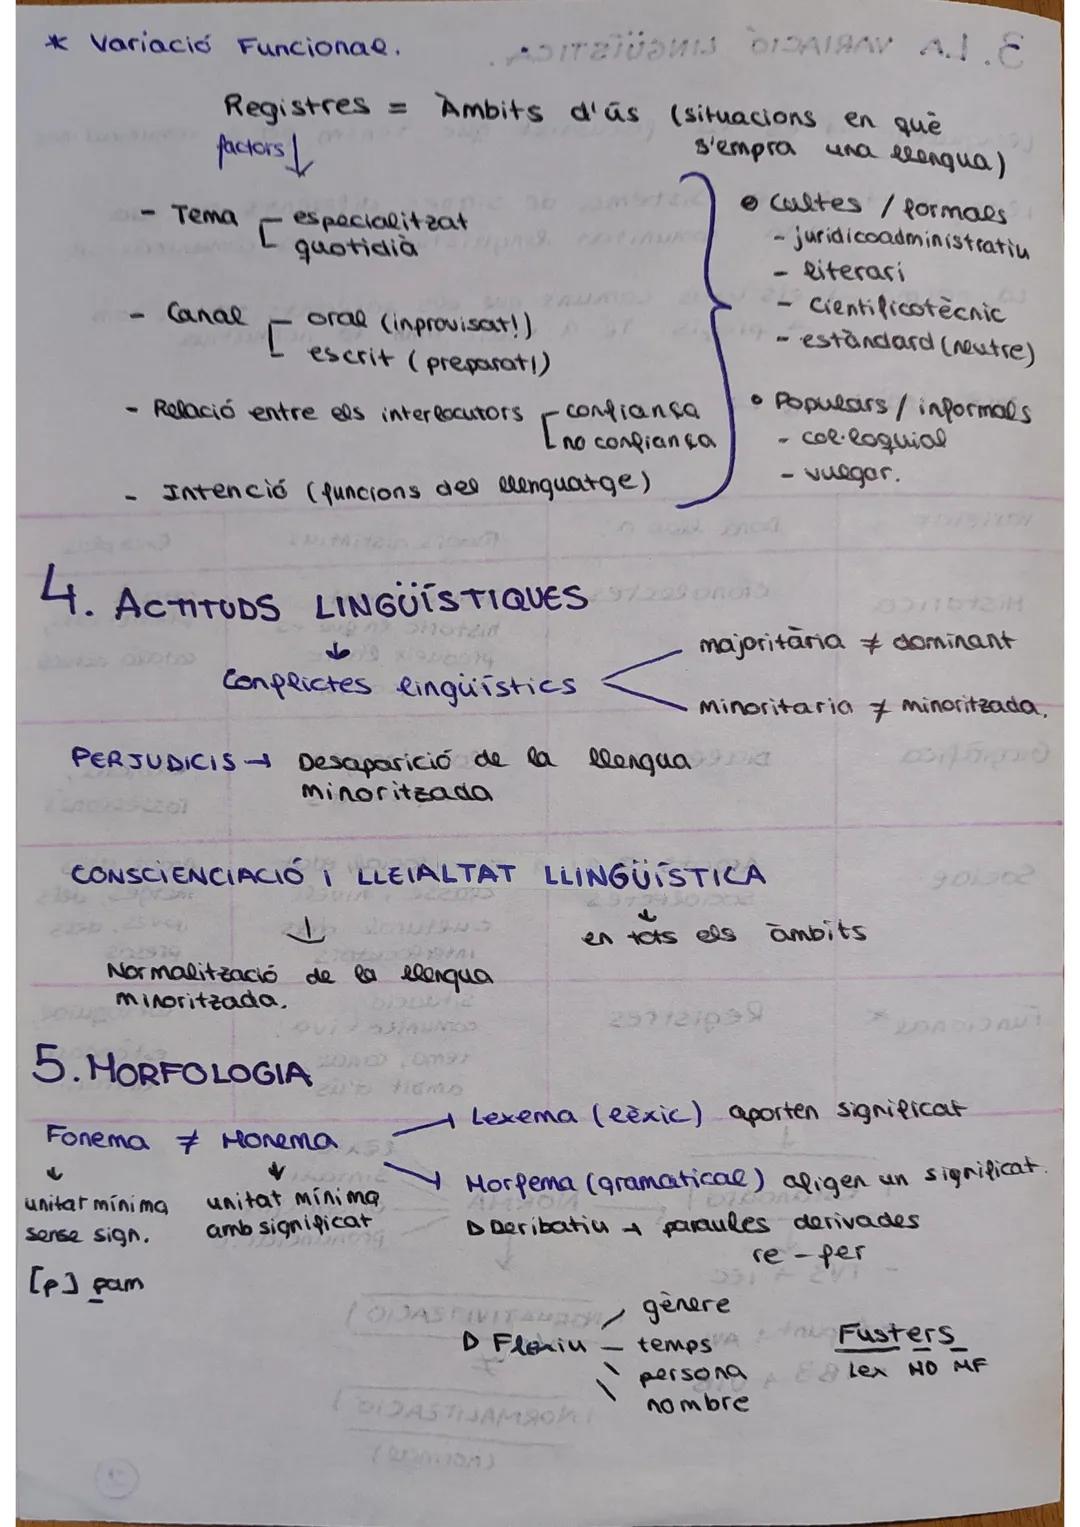 * Variació Funcional.
Registres = Àmbits d'ús (situacions en què
s'empra una llengua)
factors ↓
- Tema - especialitzat
quotidià
- Canal - oral (inprovisat!)
escrit (preparat!)
- Relació entre els interlocutors - confiança
no confiança
- Intenció (funcions del llenguatge)
• Cultes / formals
- juridicoadministratiu
- literari
- Científicotècnic
- estàndard (neutre)
• Populars / informals
- col·loquial
- vulgar.
4. ACTITUDS LINGÜÍSTIQUES
↓
Conflictes lingüístics
majoritària ≠ dominant
minoritaria ≠ minoritzada.
PERJUDICIS → Desaparició de la llengua
minoritzada
CONSCIENCIACIÓ i LLEIALTAT LLINGÜÍSTICA
↓
en tots els àmbits
↓
Normalització de la llengua
minoritzada.
5. MORFOLOGIA
Fonema ≠ Monema
→ Lexema (lèxic) aporten significat
→ Morfema (gramatical) afigen un significat.
↓ ↓
unitat mínima
sense sign.
[p] pam
unitat mínima
amb significat
▷ Deribatiu → paraules derivades
re - fer
▷ Flexiu
gènere
temps
persona
nombre
Fusters
Lex MD MF